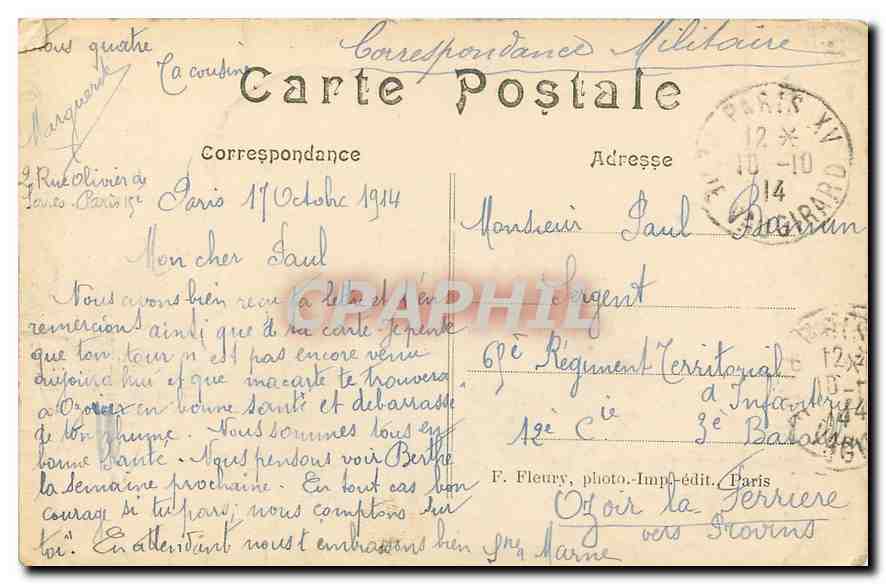 tous quatre
Correspondance Militaire
Ta cousine
Marguerite
Carte Postale
Correspondance
Adresse
PARIS XV
12 *
10 -10
14
VAUGIRARD
2 Rue Olivier de
Serres Paris 15e
Paris 17 Octobre 1914
Mon cher Paul
Nous avons bien reçu ta lettre et t'en
remercions ainsi que de ta carte Je pense
que ton tour n'est pas encore venu
aujourd'hui et que ma carte te trouvera
à Ozoir en bonne santé et débarrassé
de ton rhume. Nous sommes tous en
bonne santé. Nous pensons voir Berthe
la semaine prochaine. En tout cas bon
courage si tu pars, nous comptons sur
toi. En attendant nous t'embrassons bien
Monsieur Paul
Sergent
Régiment Territorial
d'Infanterie
12e Cie 3e
F. Fleury, photo.-Imp.-édit., Paris
Ozoir la Ferriere
vers Provins
Sne Marne
CPAPHIL